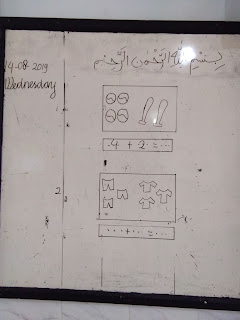 بِسْمِ اللّٰهِ الرَّحْمٰنِ الرَّحِيْمِ
14-08-2019
Wednesday
4 + 2 = ...
2
... + ... = ...